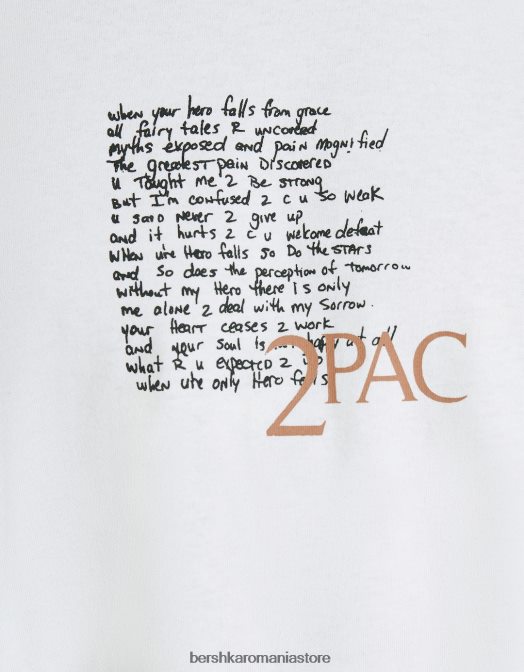 when your hero falls from grace
all fairy tales R uncovered
myths exposed and pain magnified
The greatest pain Discovered
u Taught me 2 Be strong
But I'm confused 2 c u so weak
u said Never 2 give up
and it hurts 2 c u welcome defeat
When ure Hero falls so Do the STARS
and so does the perception of tomorrow
without my Hero there is only
me alone 2 deal with my Sorrow.
your Heart ceases 2 work
and your soul is happy at all
what R u expected 2 do
when ure only Hero falls
2PAC
bershkaromaniastore